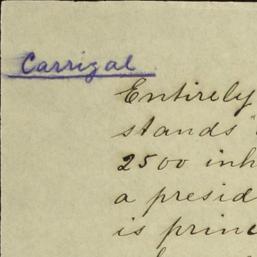 Carrizal
Entirely
stands "
2500 inh
a presid
is princ